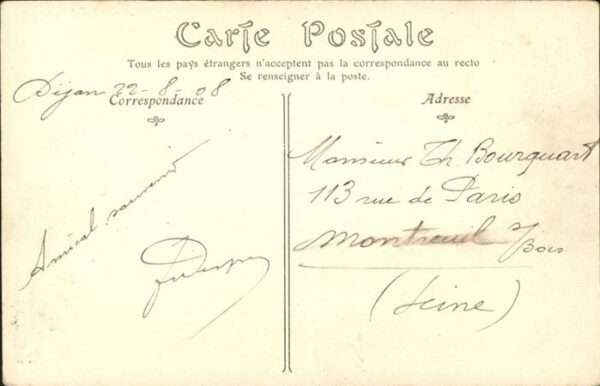 Carte Postale
Tous les pays étrangers n'acceptent pas la correspondance au recto
Se renseigner à la poste.
Dijon 22-8-08
Correspondance
Amical souvenir
Adresse
Monsieur Th Bourquart
113 rue de Paris
Montreuil s/Bois
(Seine)